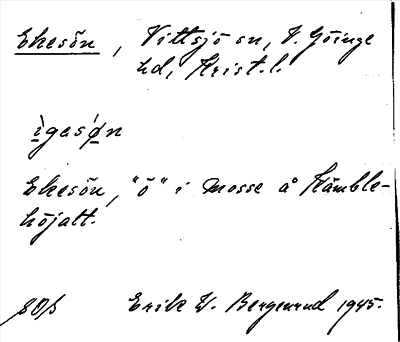 Ekesön, Vittsjö sn, V. Göinge
hd, Krist. l.
ìgasǿn
Ekesön, "ö" i mosse å Skämble-
höjatt.
Erik W. Bergenrud 1945.